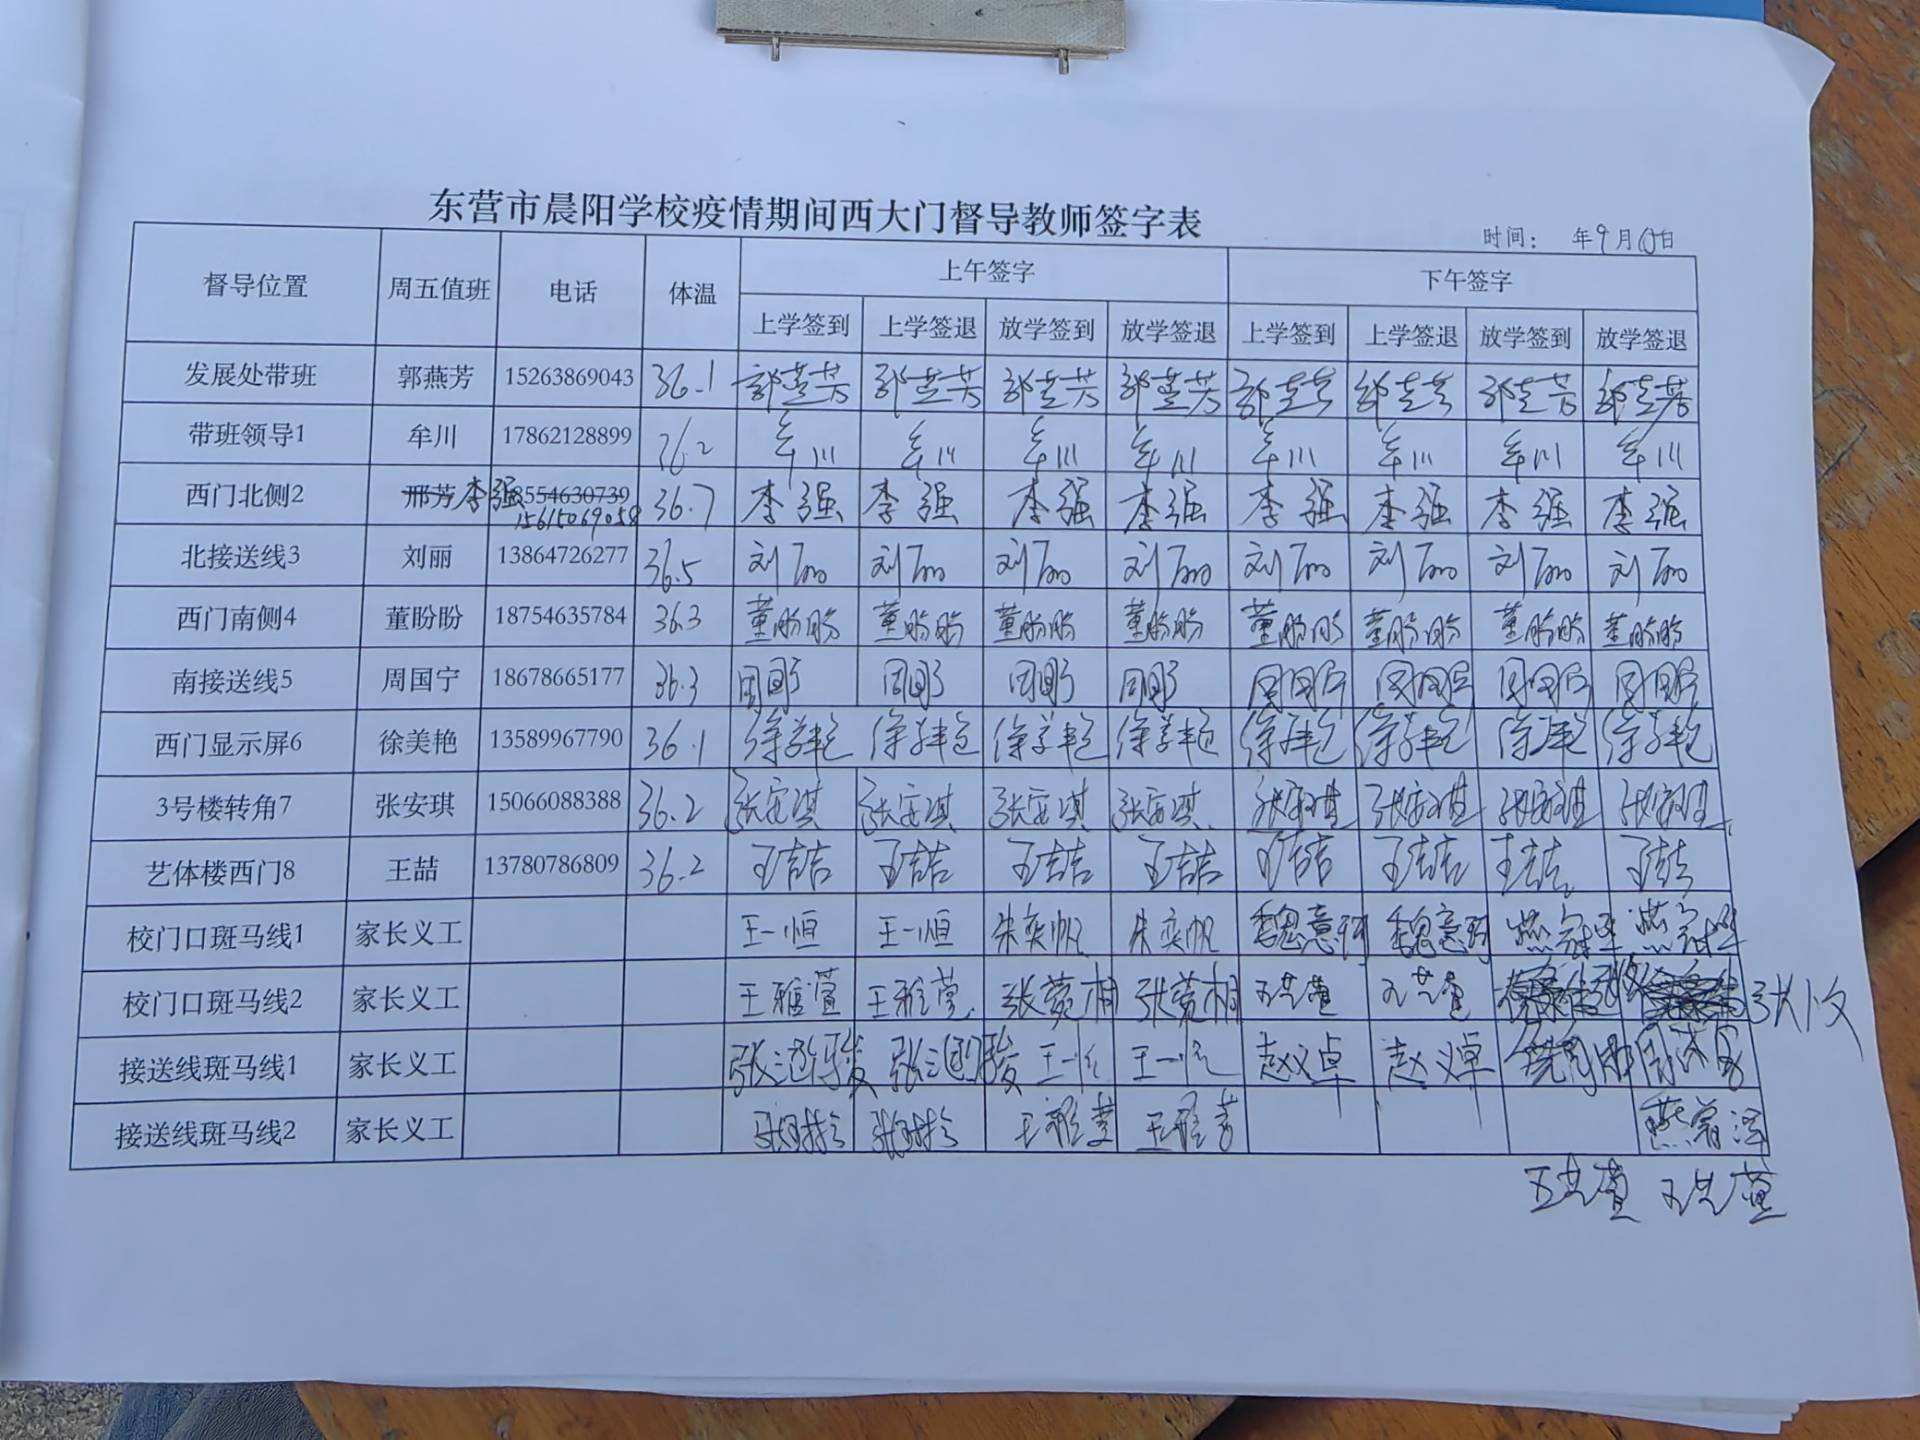 东营市晨阳学校疫情期间西大门督导教师签字表
时间： 年9月10日
督导位置 周五值班 电话 体温 上午签字 下午签字
上学签到 上学签退 放学签到 放学签退 上学签到 上学签退 放学签到 放学签退
发展处带班 郭燕芳 15263869043 36.1 郭燕芳 郭燕芳 郭燕芳 郭燕芳 郭燕芳 郭燕芳 郭燕芳 郭燕芳
带班领导1 牟川 17862128899 36.2 牟川 牟川 牟川 牟川 牟川 牟川 牟川 牟川
西门北侧2 邢芳 李强 8554630739 36.7 李强 李强 李强 李强 李强 李强 李强 李强
15615069058
北接送线3 刘丽 13864726277 36.5 刘丽 刘丽 刘丽 刘丽 刘丽 刘丽 刘丽 刘丽
西门南侧4 董盼盼 18754635784 36.3 董盼盼 董盼盼 董盼盼 董盼盼 董盼盼 董盼盼 董盼盼 董盼盼
南接送线5 周国宁 18678665177 36.3 周国宁 周国宁 周国宁 周国宁 周国宁 周国宁 周国宁 周国宁
西门显示屏6 徐美艳 13589967790 36.1 徐美艳 徐美艳 徐美艳 徐美艳 徐美艳 徐美艳 徐美艳 徐美艳
3号楼转角7 张安琪 15066088388 36.2 张安琪 张安琪 张安琪 张安琪 张安琪 张安琪 张安琪 张安琪
艺体楼西门8 王喆 13780786809 36.2 王喆 王喆 王喆 王喆 王喆 王喆 王喆 王喆
校门口斑马线1 家长义工 王一恒 王一恒 朱奕帆 朱奕帆 魏意珂 魏意珂
校门口斑马线2 家长义工 王雅萱 王雅萱 张菀桐 张菀桐 王艺萱 王艺萱
接送线斑马线1 家长义工 王一恒 王一恒 赵义卓 赵义卓
接送线斑马线2 家长义工 王雅萱 王雅萱
王艺萱 王艺萱